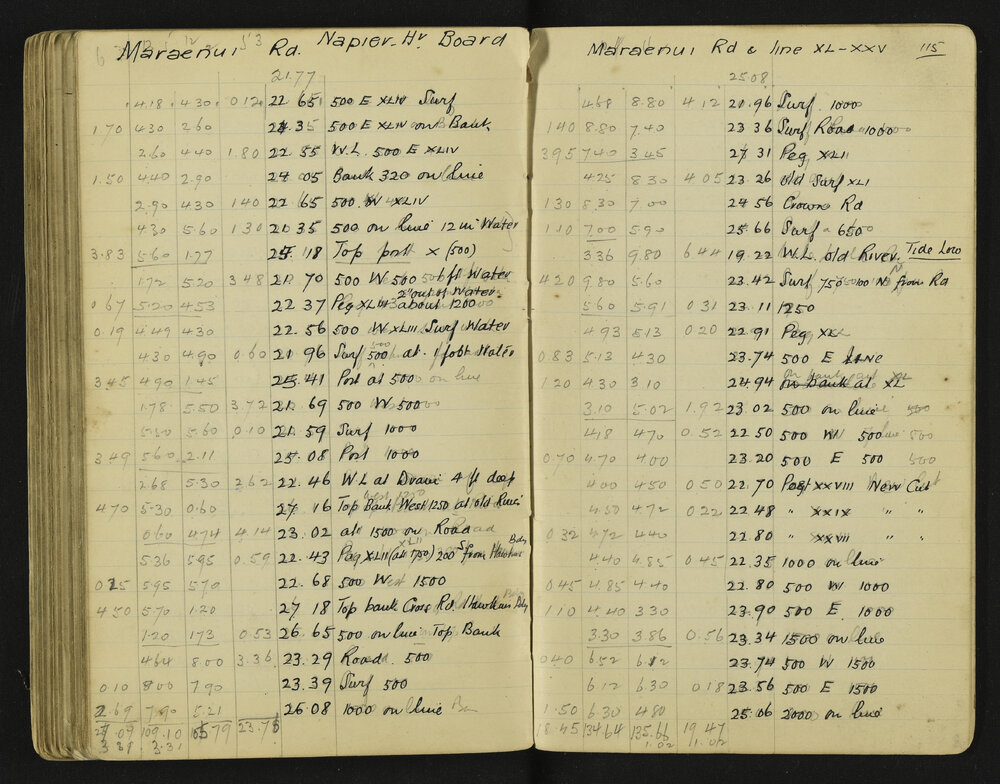 Maraenui Rd. Napier Hr Board
21.77
4.18 4.30 0.12 22 65 500 E XLIV Surf
1.70 4.30 2.60 24.35 500 E XLIV on Bank
2.60 4.40 1.80 22 55 W.L. 500 E XLIV
1.50 4.40 2.90 24 05 Bank 320 on line
2.90 4.30 1.40 22 65 500 W XLIV
4.30 5.60 1.30 21 35 500 on line 12 in Water
3.83 5.60 1.77 25 18 Top post x (500)
1.72 5.20 3.48 21 70 500 W 500 6 ft Water
0.67 5.20 4.53 22 37 Peg XLIII 2" out of Water about 1200
0.19 4.49 4.30 22.56 500 W XLIII Surf Water
4.30 4.90 0.60 21 96 Surf 500 at 1 foot Water
3.45 4.90 1.45 25.41 Post at 500 on line
1.78 5.50 3.72 21 69 500 W 500
5.50 5.60 0.10 21 59 Surf 1000
3.49 5.60 2.11 25.08 Post 1000
2.68 5.30 2.62 22.46 W.L at Drain 4 ft deep
4.70 5.30 0.60 27 16 Top Bank West 1250 at old River
0.60 4.74 4.14 23.02 at 1500 on Road
5.36 5.95 0.59 22.43 Peg XLII (at 1750) 200 Sth from Bdy
0.25 5.95 5.70 22.68 500 West 1500
4.50 5.70 1.20 27 18 Top bank Cross Rd Bdy
1.20 1.73 0.53 26.65 500 on line Top Bank
4.64 8.00 3.36 23.29 Road 500
0.10 8.00 7.90 23.39 Surf 500
2.69 7.90 5.21 26 08 1000 on line
27.09 109.10 105.79 23.78
3.31 3.31
Maraenui Rd & line XL-XXV 115
25.08
4.68 8.80 4.12 20.96 Surf 1000
1.40 8.80 7.40 23 36 Surf Road 1000
3.95 7.40 3.45 27 31 Peg XLI
4.25 8.30 4.05 23.26 old Surf XLI
1.30 8.30 7.00 24 56 Crown Rd
1.10 7.00 5.90 25.66 Surf 650
3.36 9.80 6.44 19.22 W.L. old River. Tide Low
4.20 9.80 5.60 23.42 Surf 750 100 N from Rd
5.60 5.91 0.31 23.11 1250
4.93 5.13 0.20 22.91 Peg XL
0.83 5.13 4.30 23.74 500 E LINE
1.20 4.30 3.10 24.94 on bank at XL
3.10 5.02 1.92 23.02 500 on line 500
4.18 4.70 0.52 22 50 500 W 500
0.70 4.70 4.00 23.20 500 E 500
4.00 4.50 0.50 22.70 Peg XXVIII New Cut
4.50 4.72 0.22 22.48 " XXIX " "
0.32 4.72 4.40 22.80 " XXVIII " "
4.40 4.85 0.45 22.35 1000 on line
0.45 4.85 4.40 22.80 500 W 1000
1.10 4.40 3.30 23.90 500 E 1000
3.30 3.86 0.56 23.34 1500 on line
0.40 6.52 6.12 23.74 500 W 1500
6.12 6.30 0.18 23.56 500 E 1500
1.50 6.30 4.80 25.06 2000 on line
18.45 134.64 135.66 19.47
1.02 1.02